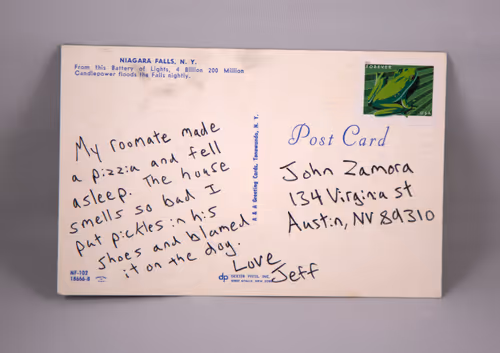 NIAGARA FALLS, N. Y.
From this Battery of Lights, 4 Billion 200 Million
Candlepower floods the Falls nightly.
FOREVER
USA
My roomate made
a pizzia and fell
asleep. The house
smells so bad I
put pickles in his
shoes and blamed
it on the dog.
Love
Jeff
A & A Greeting Cards, Tonawanda, N. Y.
Post Card
John Zamora
134 Virginia st
Austin, NV 89310
NF-102
18666-B
dp
DEXTER PRESS, INC.